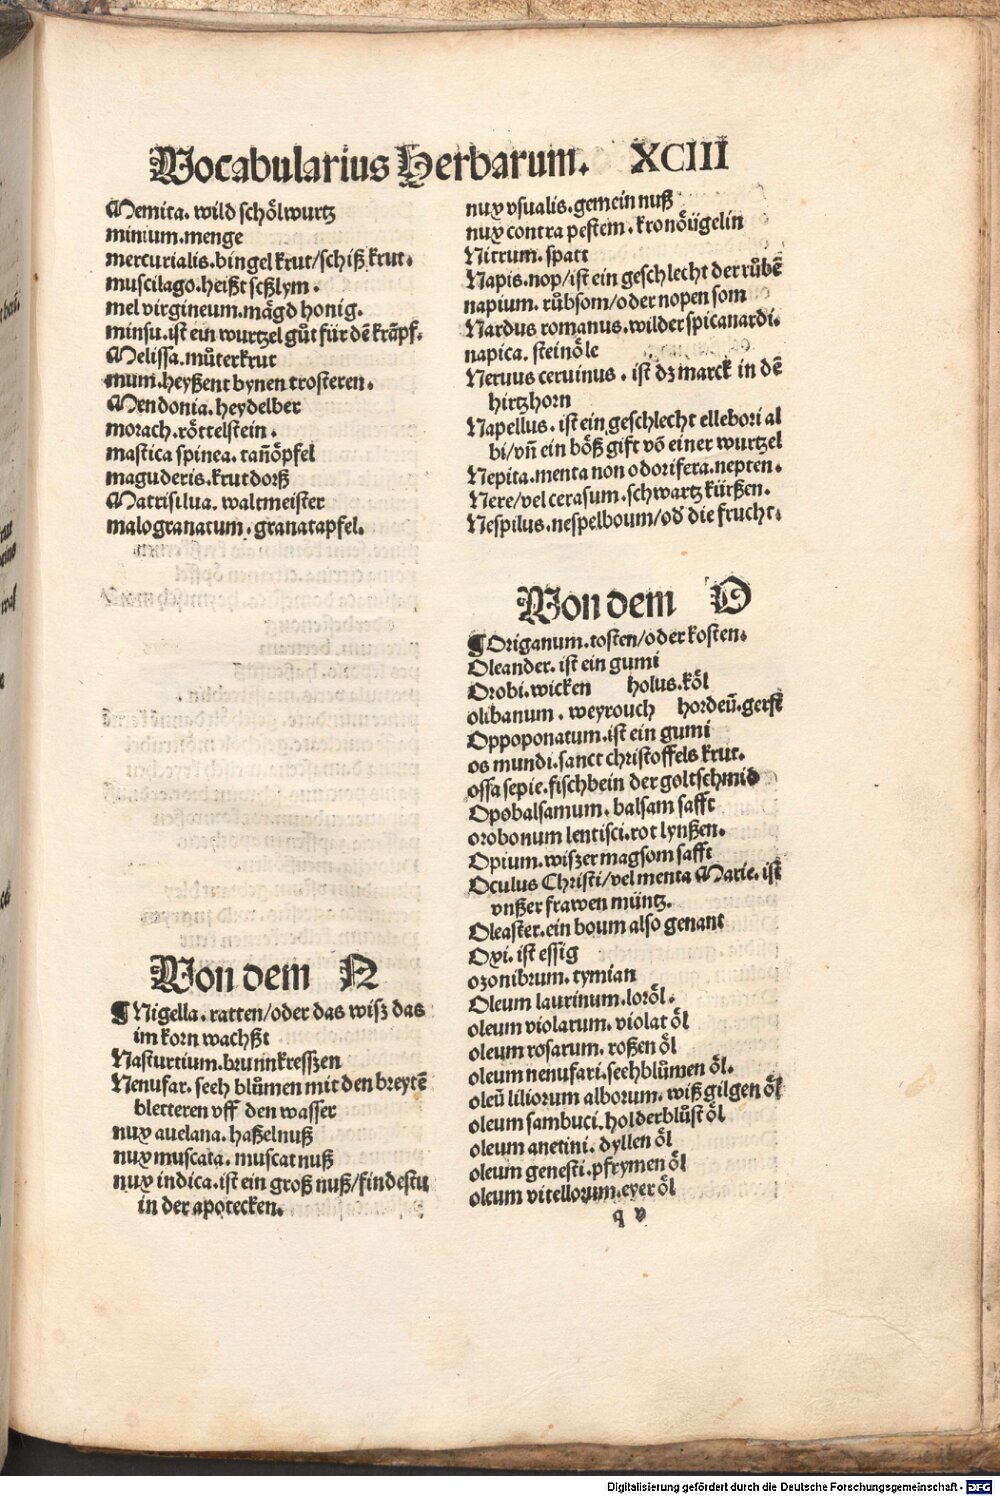 Vocabularius Herbarum. XCIII
Memita. wild schölwurtz
minium. menge
mercurialis. bingel krut/schiß krut.
muscilago. heißt scßlym.
mel virgineum. mägd honig.
minsu. ist ein wurtzel gůt für dē krāpf.
Melissa. můterkrut
mum. heyßent bynen trosteren.
Mendonia. heydelber
morach. röttelstein.
mastica spinea. tañöpfel
maguderis. krutdorß
Matrisilua. waltmeister
malogranatum. granatapfel.
Von dem N
¶ Nigella. ratten/oder das wisz das
im korn wachßt
Nasturtium. brunnkresszen
Nenufar. seeh blůmen mit den breytē
bletteren vff den wasser
nux auelana. haßelnuß
nux muscata. muscat nuß
nux indica. ist ein groß nuß/findestu
in der apotecken.
nux vsualis. gemein nuß
nux contra pestem. kronöügelin
Nitrum. spatt
Napis. nop/ist ein geschlecht der růbē
napium. růbsom/oder nopen som
Nardus romanus. wilder spicanardi.
napica. steinöle
Neruus ceruinus. ist dz marck in dē
hirtzhorn
Napellus. ist ein geschlecht ellebori al
bi/vñ ein böß gift vō einer wurtzel
Nepita. menta non odorifera. nepten.
Nere/vel cerasum. schwartz kürßen.
Nespilus. nespelboum/od die frucht.
Von dem O
¶ Origanum. tosten/oder kosten.
Oleander. ist ein gumi
Orobi. wicken holus. köl
olibanum. weyrouch hordeū. gerst
Oppoponatum. ist ein gumi
os mundi. sanct christoffels krut.
ossa sepie. fischbein der goltschmid
Opobalsamum. balsam safft
orobonum lentisci. rot lynßen.
Opium. wiszer magsom safft
Oculus Christi/vel menta Marie. ist
vnßer frawen müntz.
Oleaster. ein boum also genant
Oxi. ist essig
ozonibrum. tymian
Oleum laurinum. loröl.
oleum violarum. violat öl
oleum rosarum. roßen öl
oleum nenufari. seehblůmen öl.
oleū liliorum alborum. wiß gilgen öl
oleum sambuci. holderblůst öl
oleum anetini. dyllen öl
oleum genesti. pfrymen öl
oleum vitellorum. eyer öl
q v
Digitalisierung gefördert durch die Deutsche Forschungsgemeinschaft - DFG